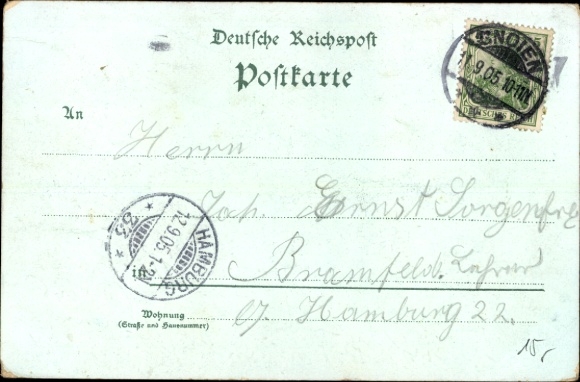 Deutsche Reichspost
Postkarte
GNOIEN
11.9.05.10-11V.
DEUTSCHES REICH
An
Herrn
Joh. Ernst Sorgenfrey
HAMBURG
12.9.05.1-2
* 33 *
in
Bramfeld. Lehrer
b/ Hamburg 22.
Wohnung
(Straße und Hausnummer)
15,